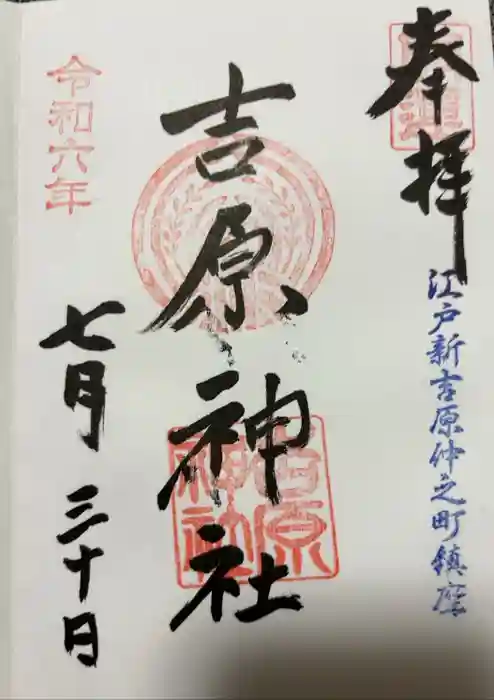 奉拝
江戸新吉原仲之町鎮座
吉原神社
吉原
神社
令和六年
七月三十日